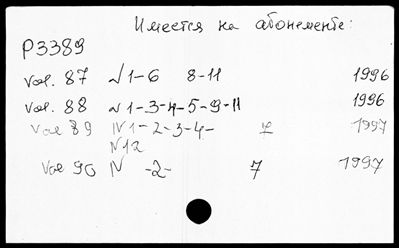 Имеется на абонементе:
P3389
vol. 87 N 1-6 8-11 1996
vol. 88 N 1-3-4-5-9-11 1996
vol 89 N 1-2-3-4- 7 1997
N12
vol 90 N -2- 7 1997